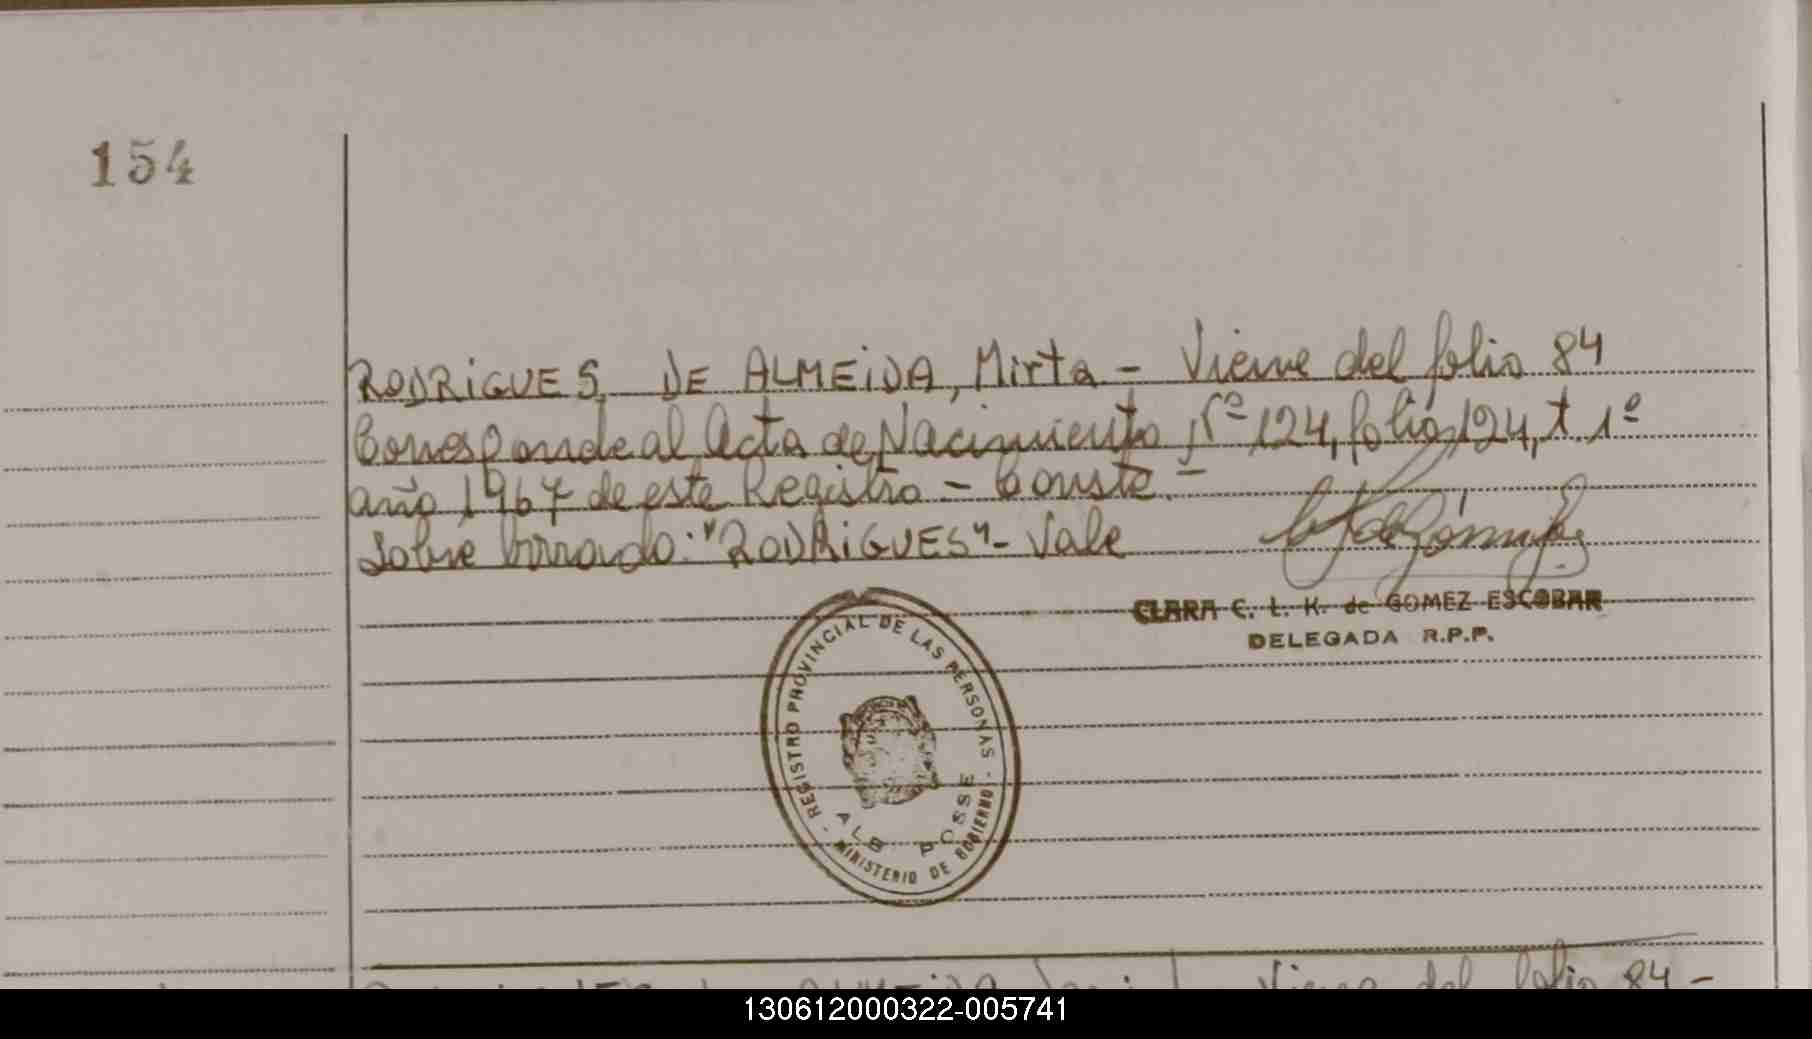 154
RODRIGUES, DE ALMEIDA, Mirta - Viene del folio 84
Corresponde al Acta de Nacimiento Nº 124, folio 124, t. 1º
año 1967 de este Registro - Conste. -
Sobre borrado: "RODRIGUES" - Vale
CLARA C. L. K. de GOMEZ ESCOBAR
DELEGADA R.P.P.
REGISTRO PROVINCIAL DE LAS PERSONAS -
ALB POSSE
MINISTERIO DE GOBIERNO -
ALMEIDA Viene del folio 84 -
130612000322-005741